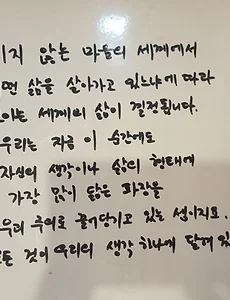 이지 않는 마음의 세계에서
떤 삶을 살아가고 있느냐에 따라
이는 세계의 삶이 결정됩니다.
우리는 지금 이 순간에도
자신의 생각이나 삶의 형태에
가장 많이 닮은 파장을
우리 주위로 끌어당기고 있는 셈이지요.
모든 것이 우리의 생각 하나에 달려 있